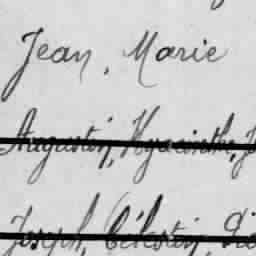 Jean, Marie
Augustin, Hyacinthe, J
Joseph, Célestin